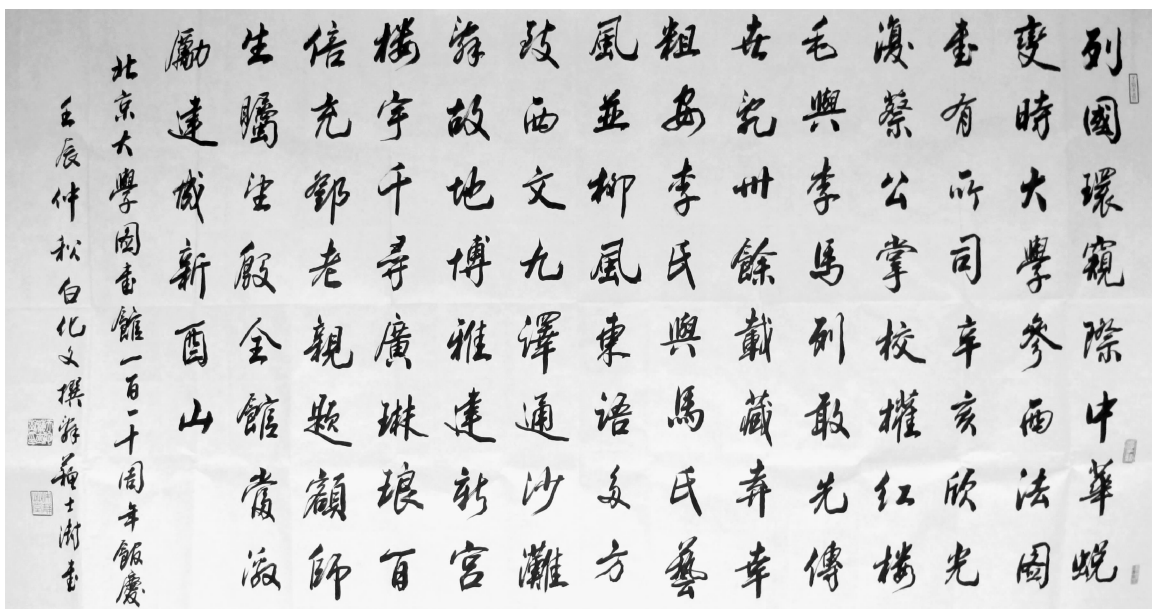 列國環窺際中華蛻
變時大學參西法圖
書有所司辛亥欣光
復蔡公掌校權紅樓
毛與李馬列敢先傳
喪亂卅餘載藏弆幸
粗安李氏與馬氏藝
風並柳風東語多方
致西文九澤通沙灘
辭故地博雅建新宮
樓宇千尋廣琳琅百
倍充鄧老親題額師
生矚望殷全館當激
勵建成新酉山
北京大學圖書館一百一十周年館慶
壬辰仲秋白化文撰辭蘇士澍書